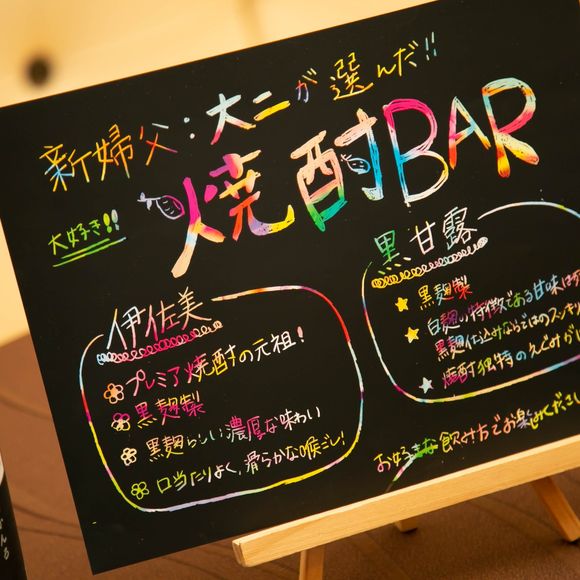 新婦父：大二が選んだ!!
大好き!!
焼酎BAR
伊佐美
プレミア焼酎の元祖！
黒麹製
黒麹らしい濃厚な味わい
口当たりよく、滑らかな喉ごし！
黒甘露
黒麹製
白麹の特徴である甘味は
黒麹仕込みならではのスッキリ
焼酎独特のえぐみが
お好きな飲み方でお楽しみください